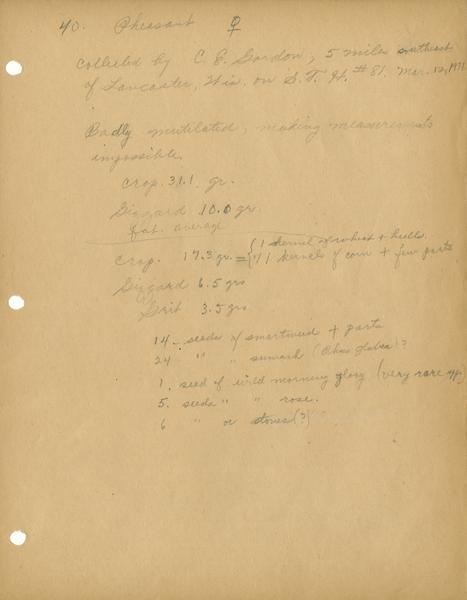 40. Pheasant ♀
collected by C. E. Gordon, 5 miles southeast
of Lancaster, Wis. on S. T. H. #81. Mar. 12, 1931
Badly mutilated, making measurements
impossible.
Crop. 31.1 gr.
Gizzard 10.0 gr
fat. average
Crop. 17.3 gr. = { 1 kernel of wheat + hulls.
71 kernels of corn + few parts
Gizzard 6.5 grs
Grit 3.5 grs
14 - seeds of smartweed + parts
24 " " sumach (Rhus glabra)?
1. seed of wild morning glory (very rare
5. seeds " " rose.
6 " or stones (?)